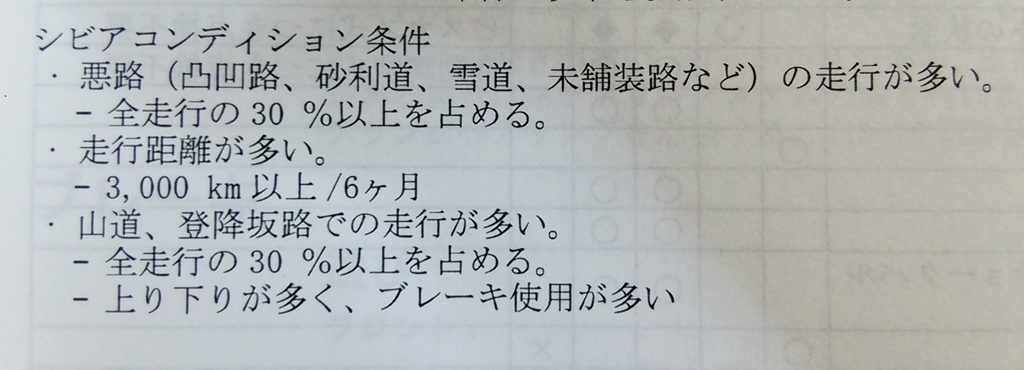 シビアコンディション条件
・ 悪路（凸凹路、砂利道、雪道、未舗装路など）の走行が多い。
− 全走行の 30 %以上を占める。
・ 走行距離が多い。
− 3,000 km 以上 /6ヶ月
・ 山道、登降坂路での走行が多い。
− 全走行の 30 %以上を占める。
− 上り下りが多く、ブレーキ使用が多い